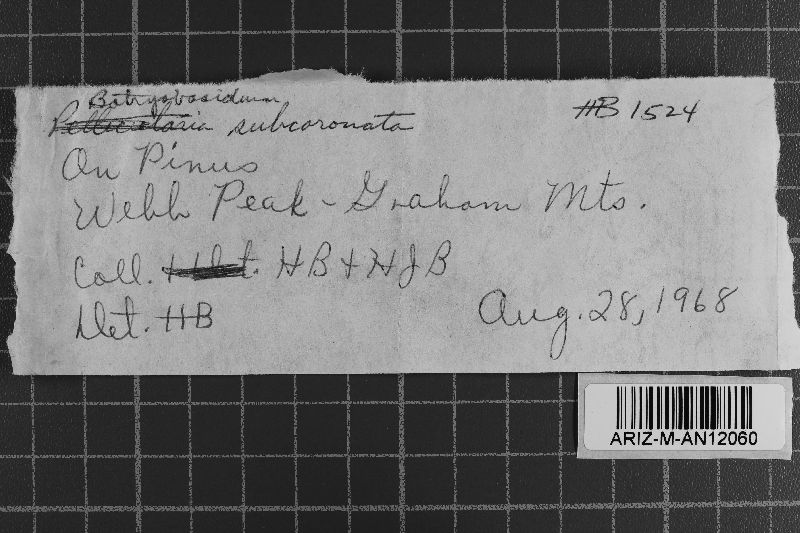 Botryobasidium
Pellicularia subcoronata
HB 1524
On Pinus
Webb Peak - Graham Mts.
Coll. HB + HJB
Det. HB
Aug. 28, 1968
ARIZ-M-AN12060